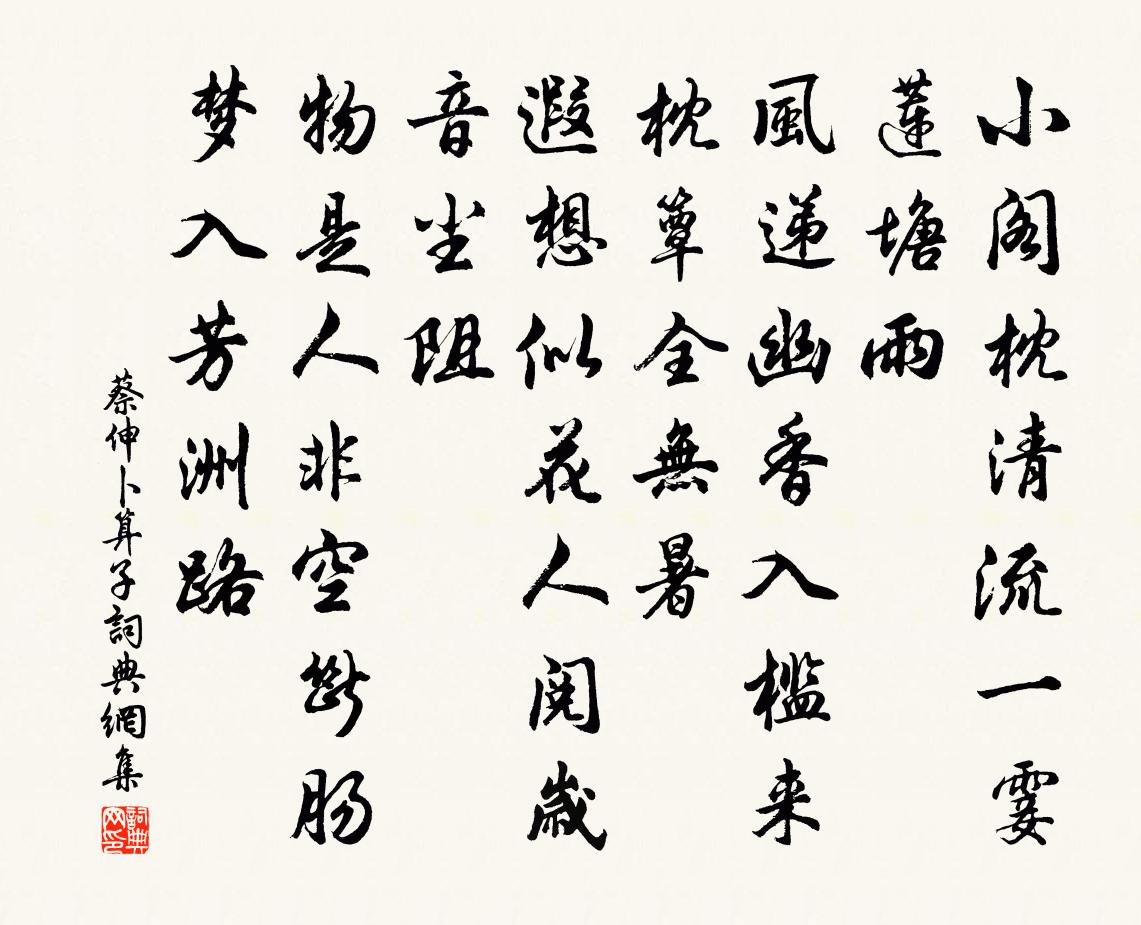 小阁枕清流一霎
蓮塘雨
風递幽香入槛来
枕簟全無暑
遐想似花人阅歲
音尘阻
物是人非空斷肠
梦入芳洲路
蔡伸卜算子詞典網集
詞典网印